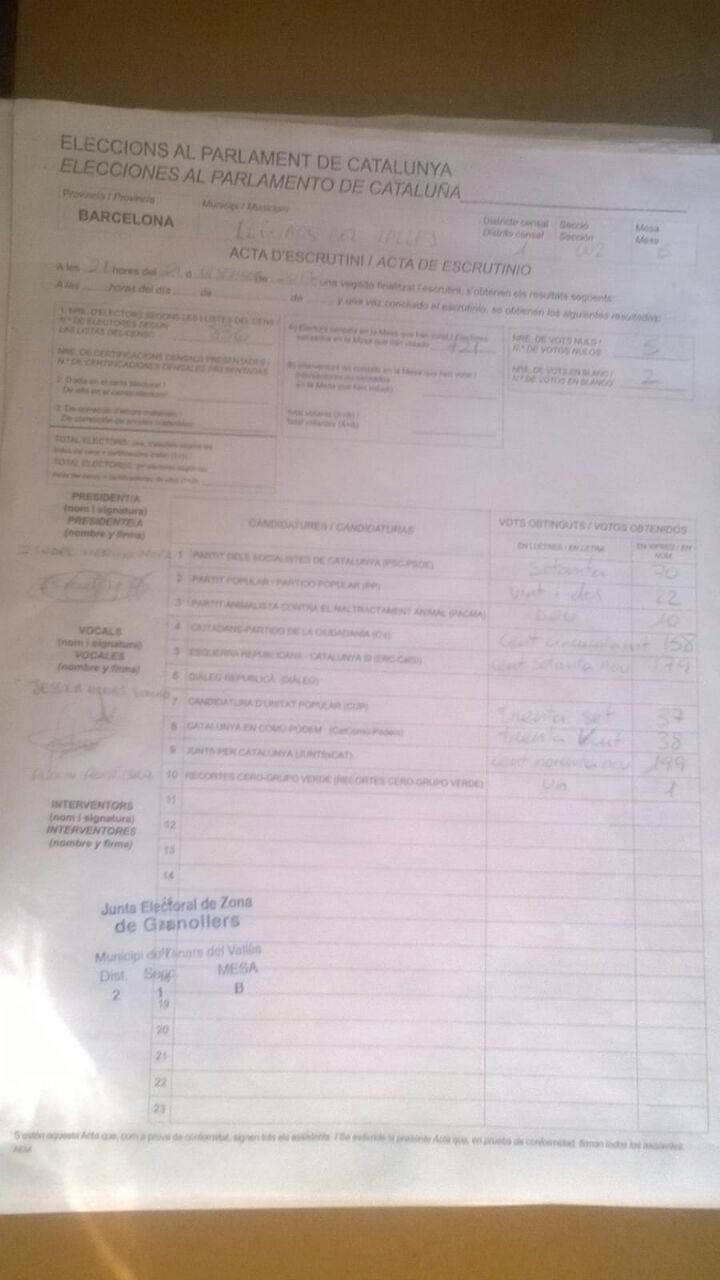 ELECCIONS AL PARLAMENT DE CATALUNYA
ELECCIONES AL PARLAMENTO DE CATALUÑA
Província / Provincia
BARCELONA
Municipi / Municipio
DEL VALLES
Districte censal
Distrito censal
1
Secció
Sección
002
Mesa
Mesa
B
ACTA D'ESCRUTINI / ACTA DE ESCRUTINIO
A les 21 hores del 21 d de 2017 una vegada finalitzat l'escrutini, s'obtenen els resultats següents:
A las hores del día de de y una vez concluido el escrutinio, se obtienen los siguientes resultados:
1. NRE. D'ELECTORS SEGONS LES LLISTES DEL CENS
N.º DE ELECTORES SEGÚN
LAS LISTAS DEL CENSO
NRE. DE CERTIFICACIONS CENSALS PRESENTADES /
N.º DE CERTIFICACIONES CENSALES PRESENTADAS
2. D'alta en el cens electoral /
De alta en el censo electoral
3. De correcció d'errors materials /
De corrección de errores materiales
TOTAL ELECTORS:
TOTAL ELECTORES:
A) Electors censats en la Mesa que han votat / Electores
censados en la Mesa que han votado 721
en la Mesa que han votado
Total votants (A+B) /
Total votantes (A+B)
NRE. DE VOTS NULS /
N.º DE VOTOS NULOS 5
NRE. DE VOTS EN BLANC /
N.º DE VOTOS EN BLANCO 2
PRESIDENT/A
(nom i signatura)
PRESIDENTE/A
(nombre y firma)
VOCALS
(nom i signatura)
VOCALES
(nombre y firma)
INTERVENTORS
(nom i signatura)
INTERVENTORES
(nombre y firma)
CANDIDATURES / CANDIDATURAS
VOTS OBTINGUTS / VOTOS OBTENIDOS
EN LLETRES / EN LETRA
EN XIFRES / EN NÚM.
1 PARTIT DELS SOCIALISTES DE CATALUNYA (PSC-PSOE) Setanta 70
2 PARTIT POPULAR / PARTIDO POPULAR (PP) vint i dos 22
3 PARTIT ANIMALISTA CONTRA EL MALTRACTAMENT ANIMAL (PACMA) DEU 10
4 CIUTADANS-PARTIDO DE LA CIUDADANÍA (C's) cent 158
5 ESQUERRA REPUBLICANA - CATALUNYA SÍ (ERC-CatSí) cent setanta nou 179
6 DIÀLEG REPUBLICÀ (DIÀLEG)
7 CANDIDATURA D'UNITAT POPULAR (CUP) trenta set 37
8 CATALUNYA EN COMÚ-PODEM (CatComú-Podem) trenta Vuit 38
9 JUNTS PER CATALUNYA (JUNTSxCAT) cent noranta nou 199
10 RECORTES CERO-GRUPO VERDE (RECORTES CERO-GRUPO VERDE) Un 1
11
12
13
14
Junta Electoral de Zona
de Granollers
Municipi de Llinars del Vallès
Dist. Secc. MESA
2 1 B
19
20
21
22
23
S'estén aquesta Acta que, com a prova de conformitat, signen tots els assistents. / Se extiende la presente Acta que, en prueba de conformidad, firman todos los asistentes.